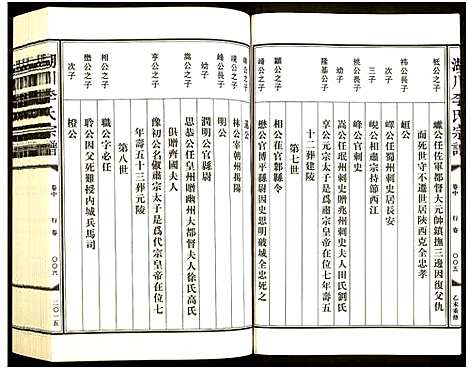 湖川李氏宗譜
卷中
行卷
〇〇五
乙未重修
柢公之子
一公任佐軍都督大元帥鎮撫三邊因復父仇
而死世守不遷世居陝西克全忠孝
祎公長子
峘公
次子
嶧公任蜀州刺史居長安
三子
峴公相肅宗持節西江
桃公長子
峰公官刺史
幼子
嵩公任珉州刺史贈兆州刺史夫人田氏劉氏
隆基公子
亨公元宗太子是肅宗皇帝在位七年壽五
十二葬建陵
第七世
一公之子
相公茬官鄱縣令
峘公之子
懋公官博平縣尉因史思明破城全忠死之
峴公之子
遇公
峰公長子
林公宰朝州揭陽
幼子
明公
嵩公之子
潤明公官縣尉
思恭公任皇州贈幽州大都督夫人徐氏高氏
俱贈齊國夫人
亨公之子
豫初公名俶肅宗太子是爲代宗皇帝在位七
年壽五十三葬元陵
第八世
相公之子
職公字必任
懋公之子
聆公因父死難授内城兵馬司
次子
橙公
湖川李氏宗譜
卷中
行卷
〇〇六
二〇一五